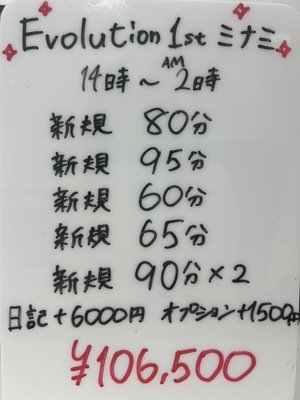 Evolution 1st ミナミ
14時〜AM2時
新規 80分
新規 95分
新規 60分
新規 65分
新規 90分×2
日記+6000円 オプション+1500円
¥106,500